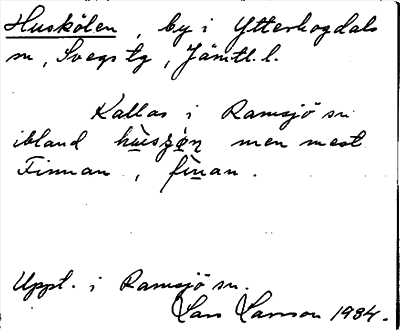 Huskölen, by i Ytterhogdals
sn, Svegs tg, Jämtl. l.
Kallas i Ramsjö sn
ibland men mest
Finnan, finan.
Uppt. i Ramsjö sn.
Lars Larsson 1984.